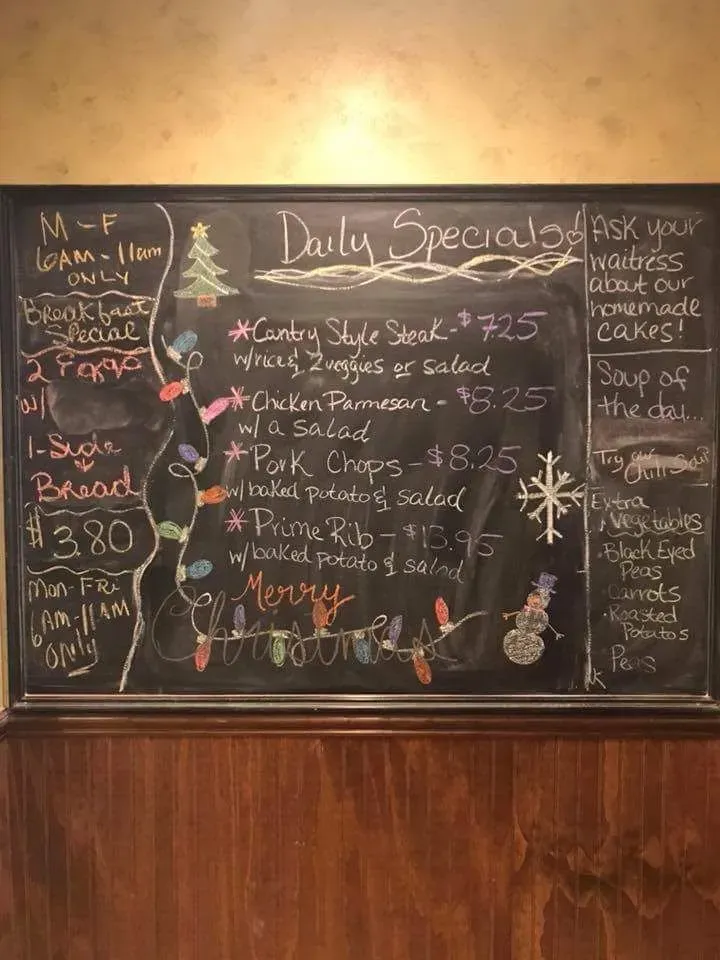 M - F
6AM - 11am
ONLY
Breakfast
Special
2 Eggs
w/
1-Side
Bread
$3.80
Mon-Fri
6AM-11AM
Only
Daily Specials
*Country Style Steak - $7.25
w/rice & 2 veggies or salad
*Chicken Parmesan - $8.25
w/ a salad
*Pork Chops - $8.25
w/ baked potato & salad
*Prime Rib - $13.95
w/ baked potato & salad
Merry
Christmas
Ask your
waitress
about our
homemade
cakes!
Soup of
the day...
Try our
Chili
Extra
Vegetables
Black Eyed
Peas
Carrots
Roasted
Potatos
Peas